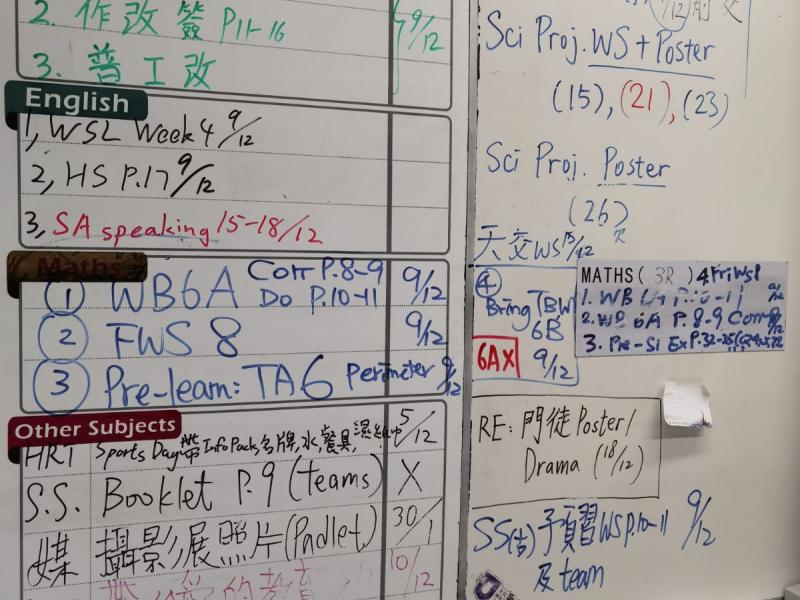 2. 作改簽 P.11-16
3. 普工改
9/12
English
1, WSL Week 4 9/12
2, HS P.17 9/12
3, SA speaking 15-18/12
Maths
① WB6A Corr P.8-9 Do P.10-11 9/12
② FWS 8 9/12
③ Pre-learn: TA6 Perimeter 9/12
Other Subjects
HRT Sports Day帶Info Pack,名牌,水,餐具,濕 5/12
S.S. Booklet P.9 (Teams) X
媒 攝影展照片(Padlet) 30/1
的教育 10/12
/12 前交
Sci Proj. WS + Poster
(15), (21), (23)
Sci Proj. Poster
(26)
天交WS 15/12
④
Bring TBW
6B
6AX 9/12
MATHS ( 3R ) 4. Fri WS1
1. WB P.10-11 9/12
2. WB 6A P.8-9 Corr
3. Pre-S1 Ex P.32-35
RE: 門徒Poster/
Drama (18/12)
SS(古)予預習WS P.10-11 9/12
及team